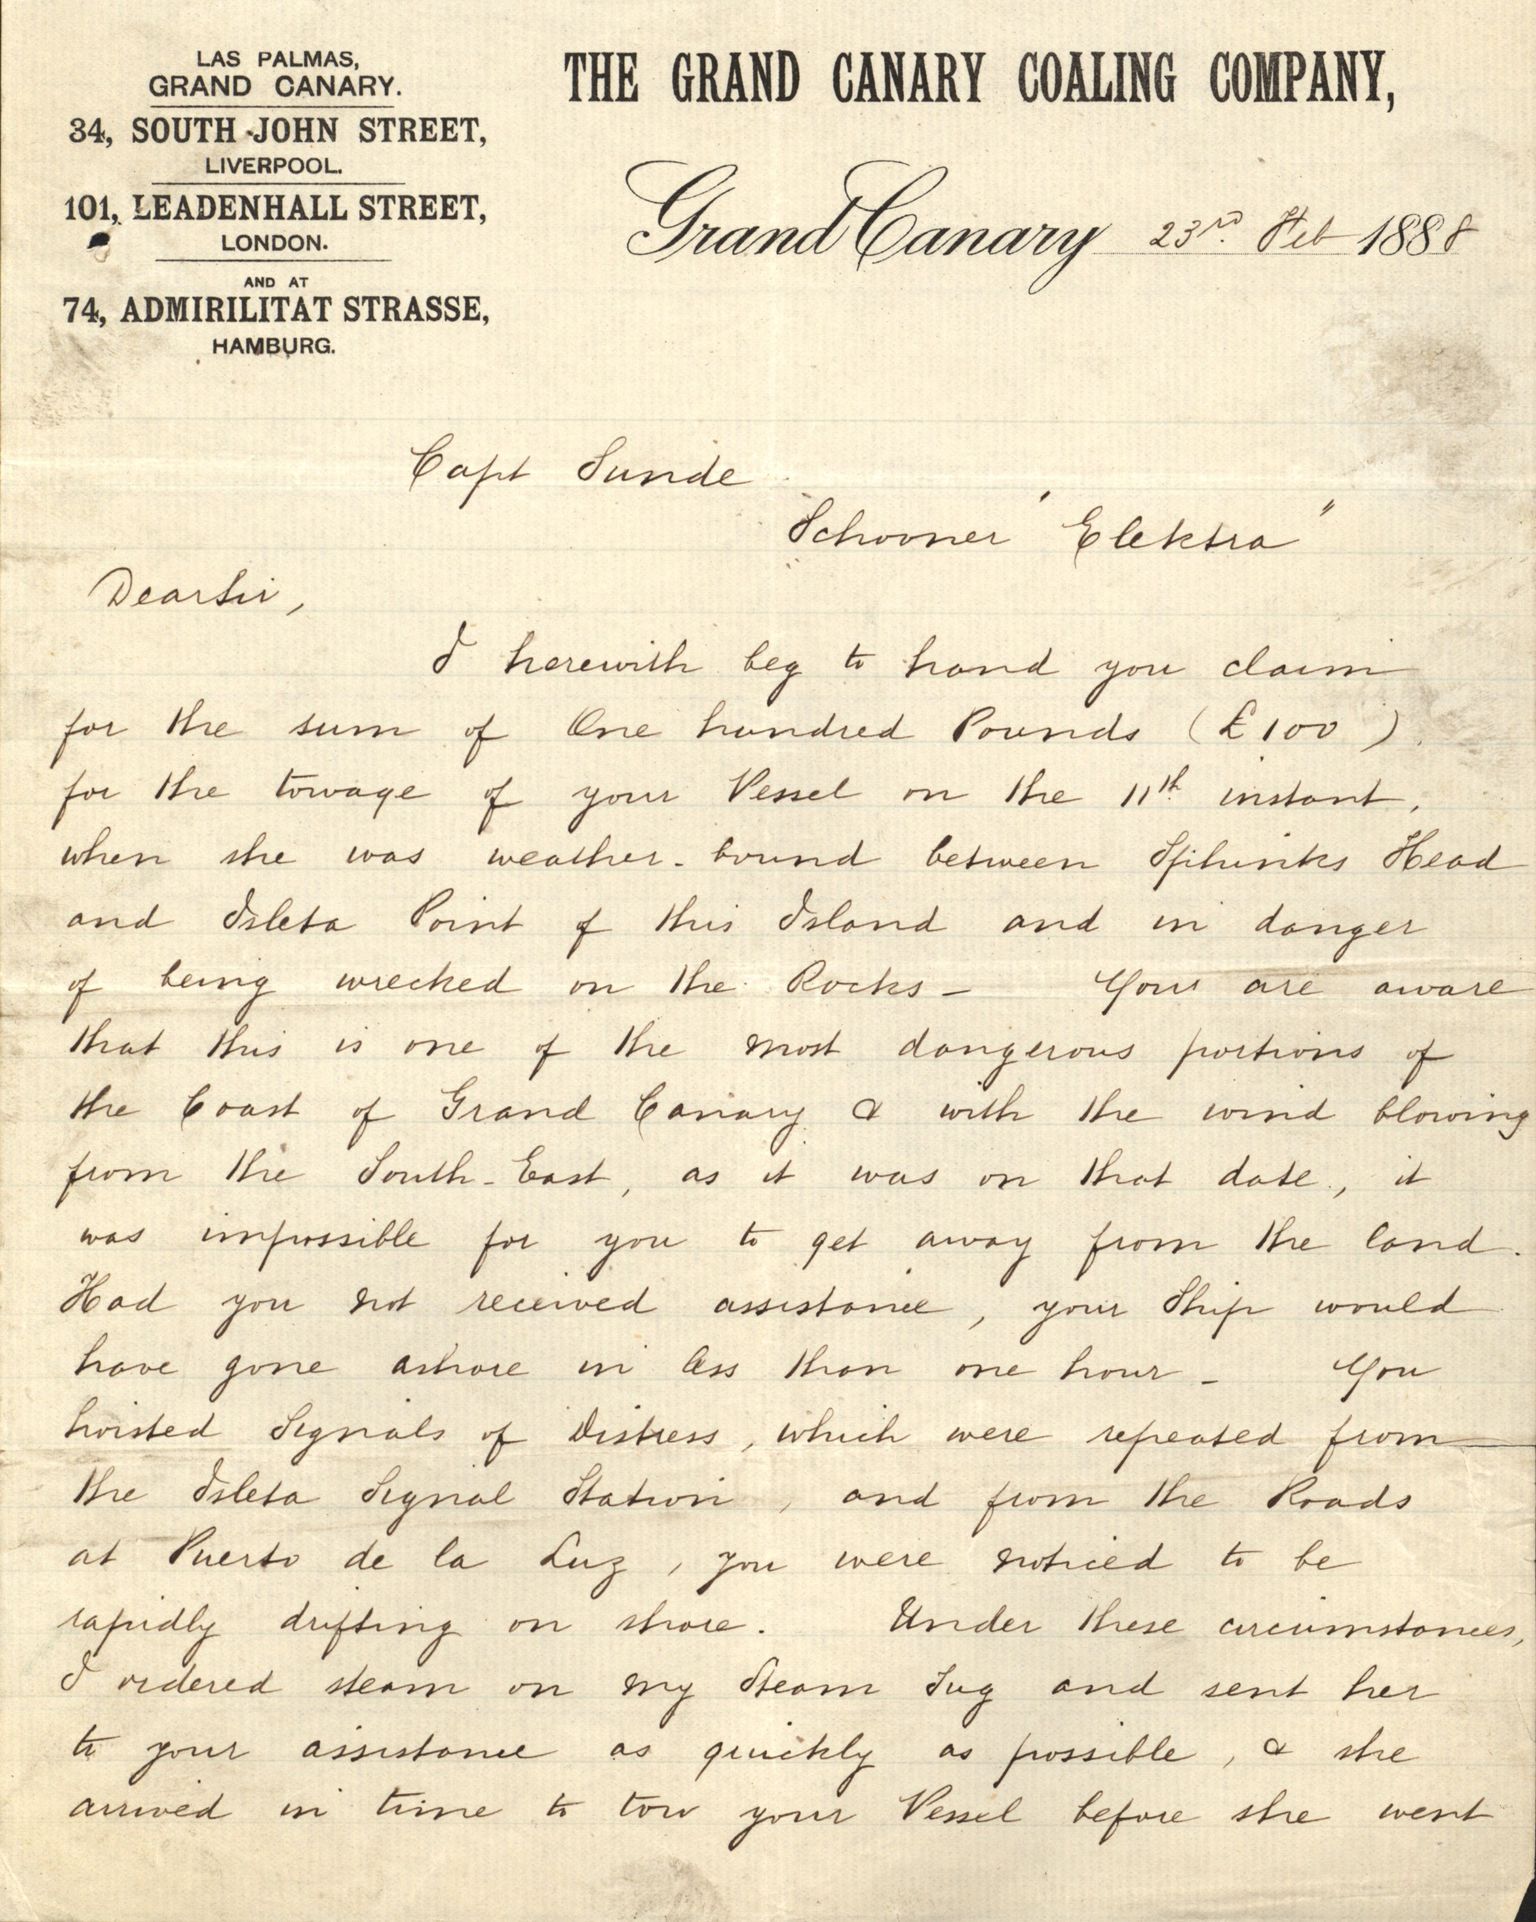 LAS PALMAS,
GRAND CANARY.
34, SOUTH JOHN STREET,
LIVERPOOL.
101, LEADENHALL STREET,
LONDON.
AND AT
74, ADMIRILITAT STRASSE,
HAMBURG.
THE GRAND CANARY COALING COMPANY,
Grand Canary 23rd Feb 1888
Capt Sunde
Schooner "Elektra"
Dear Sir,
I herewith beg to hand you claim
for the sum of One hundred Pounds (£100)
for the towage of your Vessel on the 11th instant,
when she was weather-bound between Sphinks Head
and Isleta Point of this Island and in danger
of being wrecked on the Rocks - You are aware
that this is one of the most dangerous portions of
the Coast of Grand Canary & with the wind blowing
from the South-East, as it was on that date, it
was impossible for you to get away from the land.
Had you not received assistance, your Ship would
have gone ashore in less than one hour - You
hoisted Signals of Distress, which were repeated from
the Isleta Signal Station, and from the Roads
at Puerto de la Luz, you were noticed to be
rapidly drifting on shore. Under these circumstances,
I ordered steam on my Steam Tug and sent her
to your assistance as quickly as possible, & she
arrived in time to tow your Vessel before she went